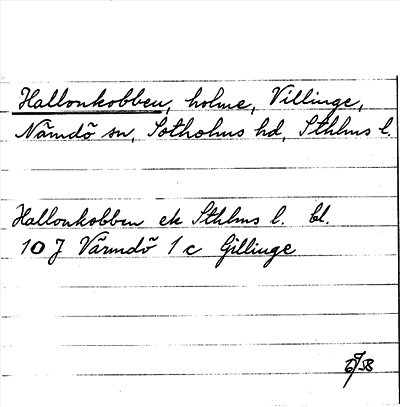 Hallonkobben, holme, Villinge,
Nämdö sn, Sotholms hd, Sthlms l.
Hallonkobben ek Sthlms l. bl.
10 J Värmdö 1 c Gillinge